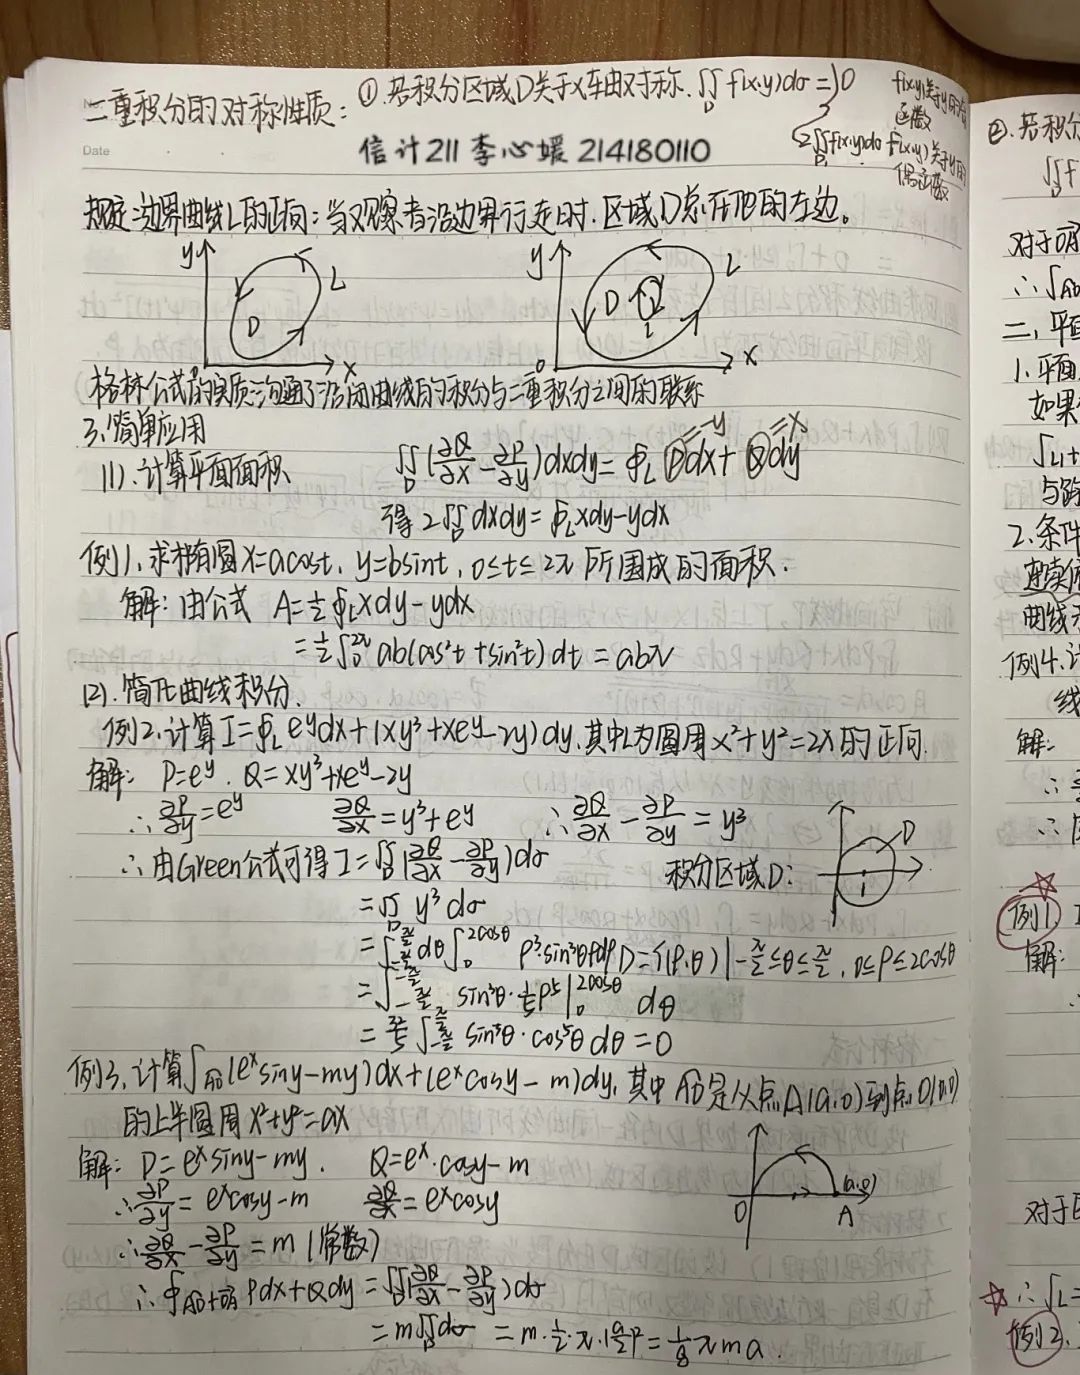 二重积分的对称性质: ①.若积分区域D关于x轴对称. ∬_D f(x,y)dσ = { 0 f(x,y)关于y的奇函数
2∬_{D₁} f(x,y)dσ f(x,y)关于y的偶函数
Date
信计211 李心媛 214180110
规定:边界曲线L的正向: 当观察者沿边界行走时. 区域D总在他的左边。
y D L x
y D L L 0 x
格林公式的实质:沟通了沿闭曲线的积分与二重积分之间的联系
3.简单应用
(1).计算平面面积 ∬_D(∂Q/∂x-∂P/∂y)dxdy=∮_L Pdx+Qdy =-y =x
得 2∬_D dxdy=∮_L xdy-ydx
例1.求椭圆x=acost, y=bsint, 0≤t≤2π 所围成的面积.
解: 由公式 A=½∮_L xdy-ydx
=½∫_0^{2π} ab(cos²t+sin²t)dt=abπ
(2).简化曲线积分.
例2.计算I=∮_L e^y dx+(xy³+xe^y-2y)dy,其中L为圆周x²+y²=2x的正向.
解: P=e^y. Q=xy³+xe^y-2y
∴∂P/∂y=e^y ∂Q/∂x=y³+e^y ∴∂Q/∂x-∂P/∂y=y³
D 1
∴由Green公式可得I=∬_D(∂Q/∂x-∂P/∂y)dσ 积分区域D:
=∬_D y³dσ
=∫_{-π/2}^{π/2}dθ∫_0^{2cosθ} ρ³·sin³θρdρ D={(ρ,θ)|-π/2≤θ≤π/2, 0≤ρ≤2cosθ
=∫_{-π/2}^{π/2} sin³θ·⅕ρ⁵|_0^{2cosθ} dθ
=32/5∫_{-π/2}^{π/2} sin³θ·cos⁵θdθ=0
例3.计算∫_{AO}(e^x siny-my)dx+(e^x cosy-m)dy,其中AO是从点A(a,0)到点O(0,0)
的上半圆周x²+y²=ax
解: P=e^x siny-my. Q=e^x·cosy-m
0 A (a,0)
∴∂P/∂y=e^x cosy-m ∂Q/∂x=e^x cosy
∴∂Q/∂x-∂P/∂y=m(常数)
∴∮_{AO+OA} Pdx+Qdy=∬_D(∂Q/∂x-∂P/∂y)dσ
=m∬_D dσ=m·½·π·(a/2)²=⅛πma
②.若积分
∬f
对于
∴∫
二、平面
1.平面
如果
∫L₁+
与路
2.条件
连续
曲线
例4.计
线
解:
例1.
解:
对于
∴∫L=
例2.